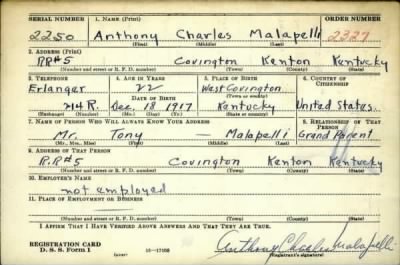 SERIAL NUMBER 1. NAME (Print) ORDER NUMBER
2250 Anthony Charles Malapelli 2327
(First) (Middle) (Last)
2. ADDRESS (Print)
RR#5 Covington Kenton Kentucky
(Number and street or R. F. D. number) (Town) (County) (State)
3. TELEPHONE 4. AGE IN YEARS 5. PLACE OF BIRTH 6. COUNTRY OF CITIZENSHIP
Erlanger 22 West Covington
DATE OF BIRTH (Town or county)
714 R. Dec. 18 1917 Kentucky United States
(Exchange) (Number) (Mo.) (Day) (Yr.) (State or country)
7. NAME OF PERSON WHO WILL ALWAYS KNOW YOUR ADDRESS 8. RELATIONSHIP OF THAT PERSON
Mr. Tony — Malapelli Grand Parent
(Mr., Mrs., Miss) (First) (Middle) (Last)
9. ADDRESS OF THAT PERSON
R.R#5 Covington Kenton Kentucky
(Number and street or R. F. D. number) (Town) (County) (State)
10. EMPLOYER'S NAME
not employed
11. PLACE OF EMPLOYMENT OR BUSINESS
(Number and street or R. F. D. number) (Town) (County) (State)
I AFFIRM THAT I HAVE VERIFIED ABOVE ANSWERS AND THAT THEY ARE TRUE.
REGISTRATION CARD
D. S. S. Form 1 (over) Anthony Charles Malapelli
(Registrant's signature)